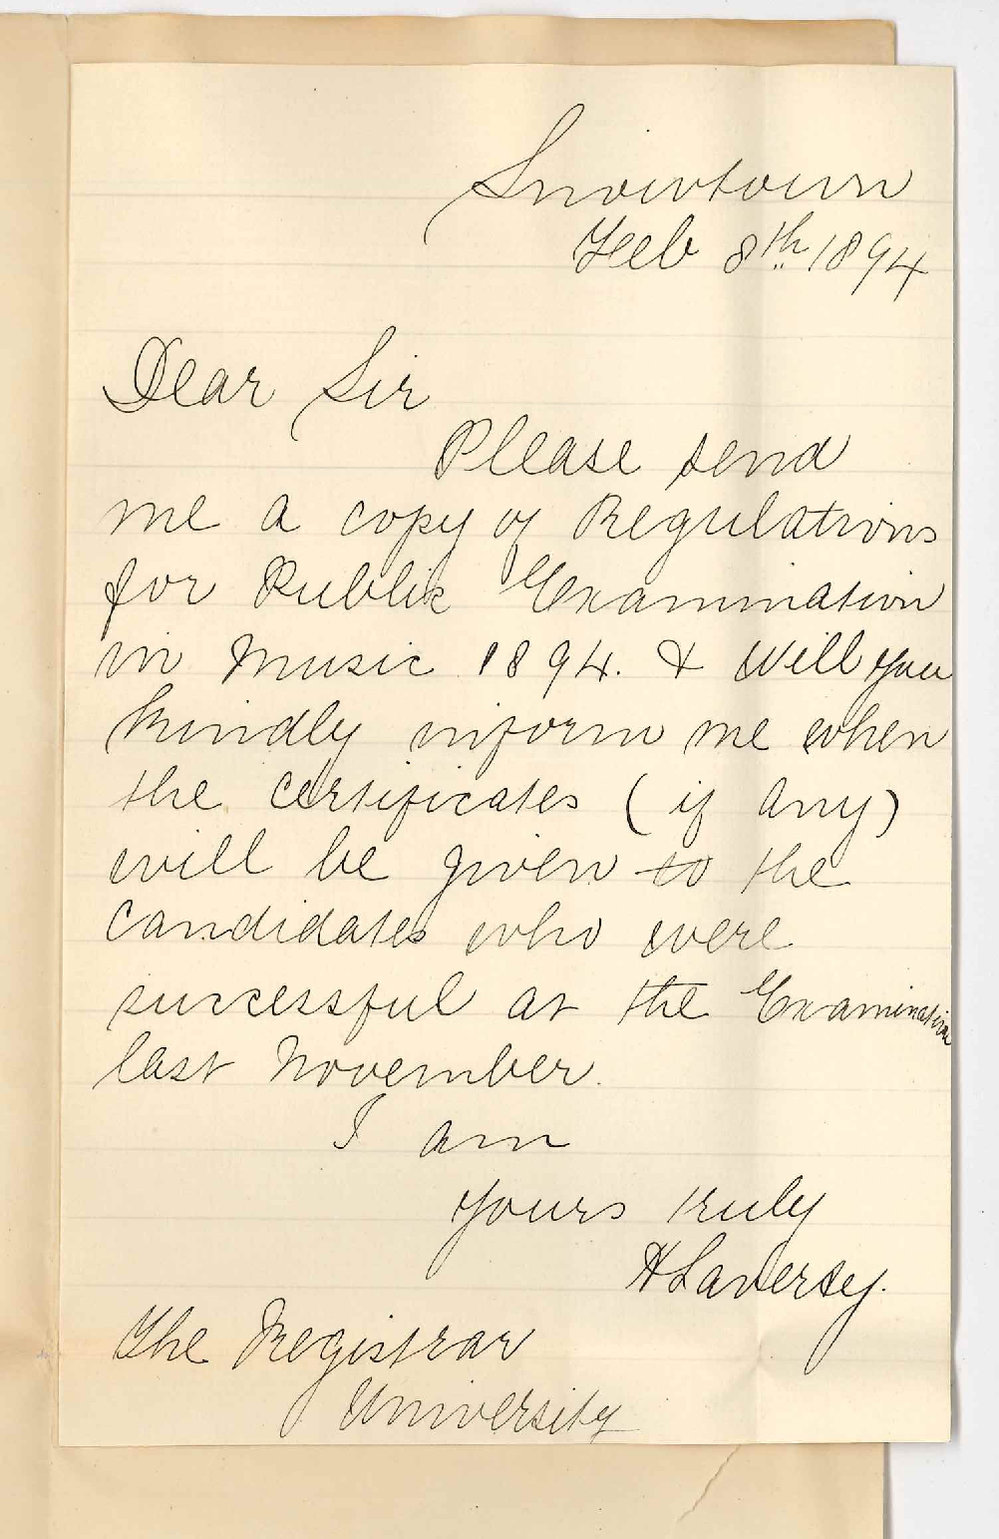 Snowtown
Feb 8th. 1894
Dear Sir
Please send
me a copy of Regulations
for Public Examination
in Music 1894. & Will you
kindly inform me when
the certificates (if any)
will be given to the
candidates who were
successful at the Examination
last November.
I am
Yours truly
H Laversy.
The Registrar
University